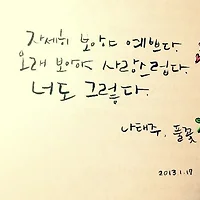 자세히 보아야 예쁘다.
오래 보아야 사랑스럽다.
너도 그렇다.
나태주, 풀꽃
2013.1.17